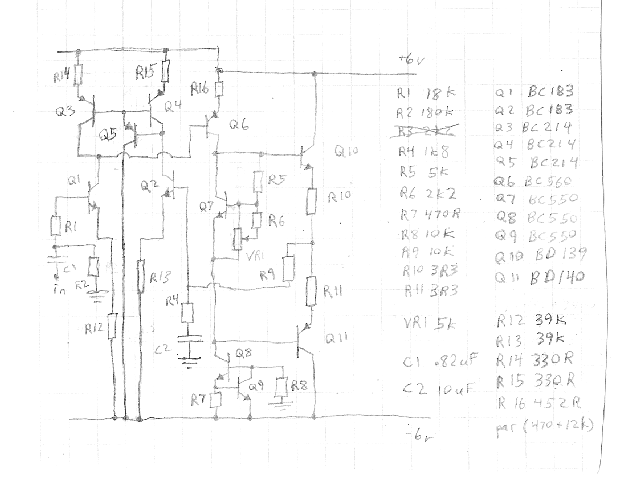 +6v
R14
R15
R16
Q3
Q4
Q5
Q6
Q1
Q2
Q7
R5
R6
Q10
R10
R1
C1
in
R2
R13
VR1
R9
R4
R11
R12
C2
Q11
Q8
Q9
R7
R8
-6v
R1 18k
R2 180k
R3 2k2
R4 1k8
R5 5k
R6 2k2
R7 470R
R8 10k
R9 10k
R10 3R3
R11 3R3
VR1 5k
C1 .82uF
C2 10uF
Q1 BC183
Q2 BC183
Q3 BC214
Q4 BC214
Q5 BC214
Q6 BC560
Q7 BC550
Q8 BC550
Q9 BC550
Q10 BD139
Q11 BD140
R12 39k
R13 39k
R14 330R
R15 330R
R16 452R
par (470+12k)